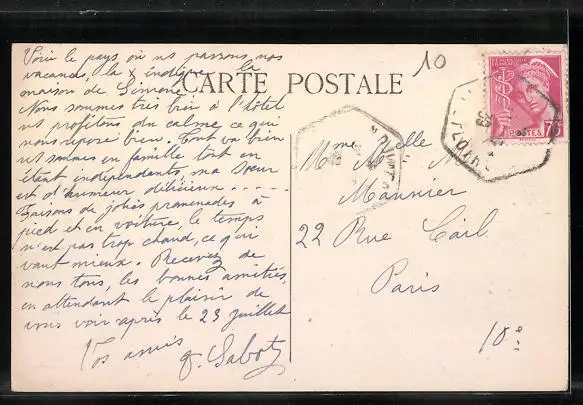 Voici le pays où ns passons nos
vacances, la x indique la
maison de Simone.
CARTE POSTALE
10
Nous sommes très bien à l'hôtel
ns profitons du calme ce qui
nous repose bien. Tout va bien
ns sommes en famille tout en
étant indépendants, ma sœur
est d'humeur délicieuse.....
Faisons de jolies promenades à
pied et en voiture, le temps
n'est pas trop chaud, ce qui
vaut mieux. Recevez de
nous tous, les bonnes amitiés,
en attendant le plaisir de
vous voir après le 23 juillet
Vos amis
G. Sabot
POSTES
Mme
Maunier
22 Rue Cail
Paris
10e